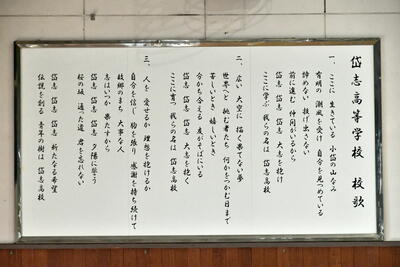 岱志高等学校 校歌
一、ここに 生きている 小岱の山なみ
有明の 潮風を受け 自分を見つめている
諦めない 投げ出さない
前に進む 仲間がいるから
岱志 岱志 岱志 大志を抱け
ここに学ぶ 我らの名は 岱志高校
二、広い 大空に 描く果てない夢
世界へと 挑む者たち 何かをつかむ日まで
苦しいとき 嬉しいとき
分かち合える 友がそばにいる
岱志 岱志 岱志 大志を抱く
ここに育つ 我らの名は 岱志高校
三、人を 愛せるか 理想を抱けるか
自分を信じ 駒を練り 感謝を持ち続けて
故郷のまち 大事な人
志はいつか 果たすから
岱志 岱志 岱志 夕陽に誓う
桜の城 通った道 君を忘れない
岱志 岱志 岱志 新たなる希望
伝説を創る 青年の樹は 岱志高校